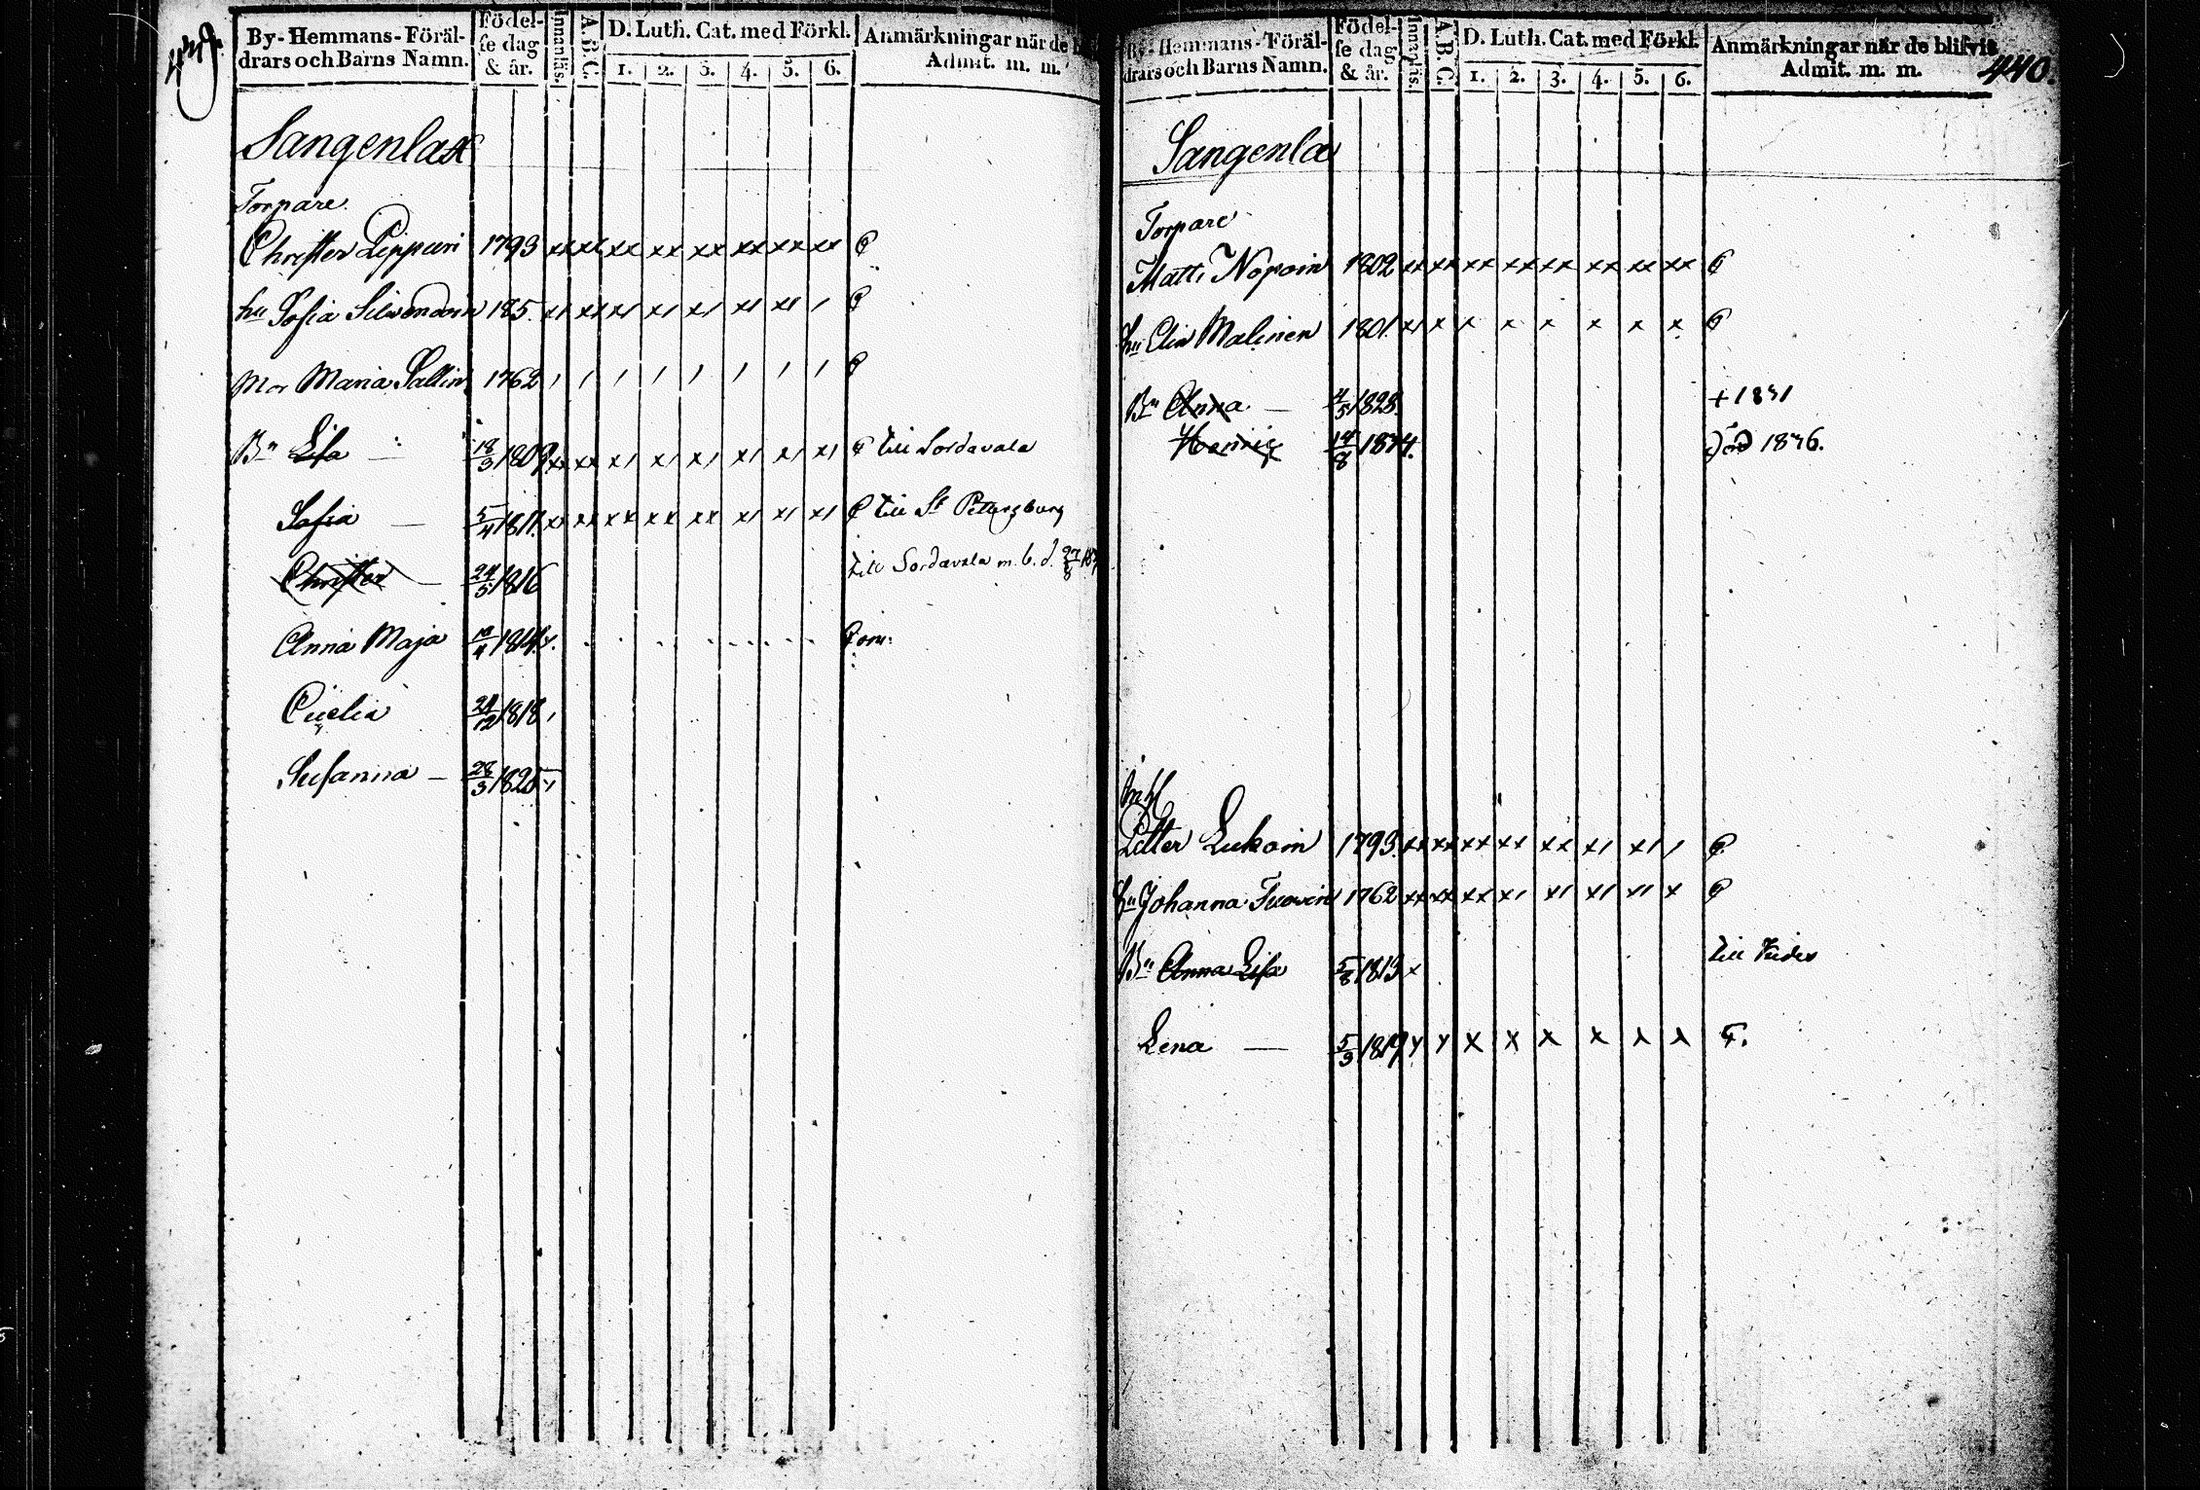 439.
By-Hemmans-Föräl-
drars och Barns Namn.
Födel-
se dag
& år.
Innanläs.
A.B.C.
D. Luth. Cat. med Förkl.
1. 2. 3. 4. 5. 6.
Anmärkningar när de
Admit. m. m.
Sangenlax
Torpare.
Christer Lippuin 1793 xx xx xx xx xx xx xx xx
hu Sofia 185.
Mor Maria Sallin 1762 / / / / / / / /
Bn Lisa — 18/3 1809 till Sordavala
Sofia — 5/4 1811. till St Petersburg
Christer — 24/5 1816 till Sordavala m. b. d. 27/8
Anna Maja 10/4 1814.
Cicelia 24/12 1818
Susanna — 28/3 1825
By-Hemmans-Föräl-
drars och Barns Namn.
Födel-
se dag
& år.
Innanläs.
A.B.C.
D. Luth. Cat. med Förkl.
1. 2. 3. 4. 5. 6.
Anmärkningar när de blifvit
Admit. m. m.
440.
Sangenlax
Torpare
Matts Nopoin 1802 xx xx xx xx xx xx xx xx
hu Elin Malinen 1801. x/ x x x x x x x
Bn Anna — 4/5 1828. + 1831
Henric 14/8 1834. Död 1836.
Inhs
Petter Lukoin 1793. xx xx xx xx xx x/ x/ /
hu Johanna Tuovin 1762 xx xx xx x/ x/ x/ x/ x
Bn Anna Lisa 5/8 1813 x till
Lena — 5/3 1819 x x x x x x x x